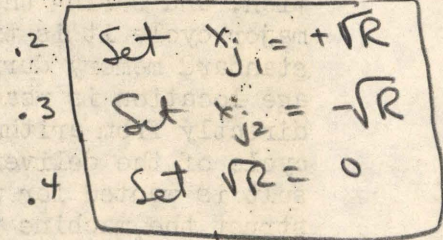 .2 Set x_j1 = +√R
.3 Set x_j2 = -√R
.4 Set √R = 0